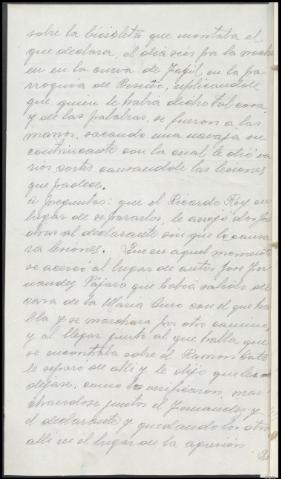 sobre la bicicleta que montaba el
que declara, el dia seis por la noche
en en la curva de Fagil, en la pa-
rroquia de replicandole
que quien le habia dicho tal cosa
y de las palabras, se fueron a las
manos, sacando una navaja su
contrincante con la cual le dió va
rios cortes causandole las lesiones
que padece.
á preguntas: que el Ricardo Rey en
lugar de separarlos, le arrojó dos pie
dras al declarante sin que le causa
ra lesiones. Que en aquel momento
se acercó al lugar de autos José Fer
nandez Pájaro que habia salido de
casa de la Maria con el que ha
bla y se marchara por otro camino,
y al llegar junto al que habla que
se encontraba sobre el Ramon
le separo de alli y le dijo que le
dejase, como lo verificaron, mar
chandose juntos el Fernandez y
el declarante y quedando los otros
alli en el lugar de la agresión